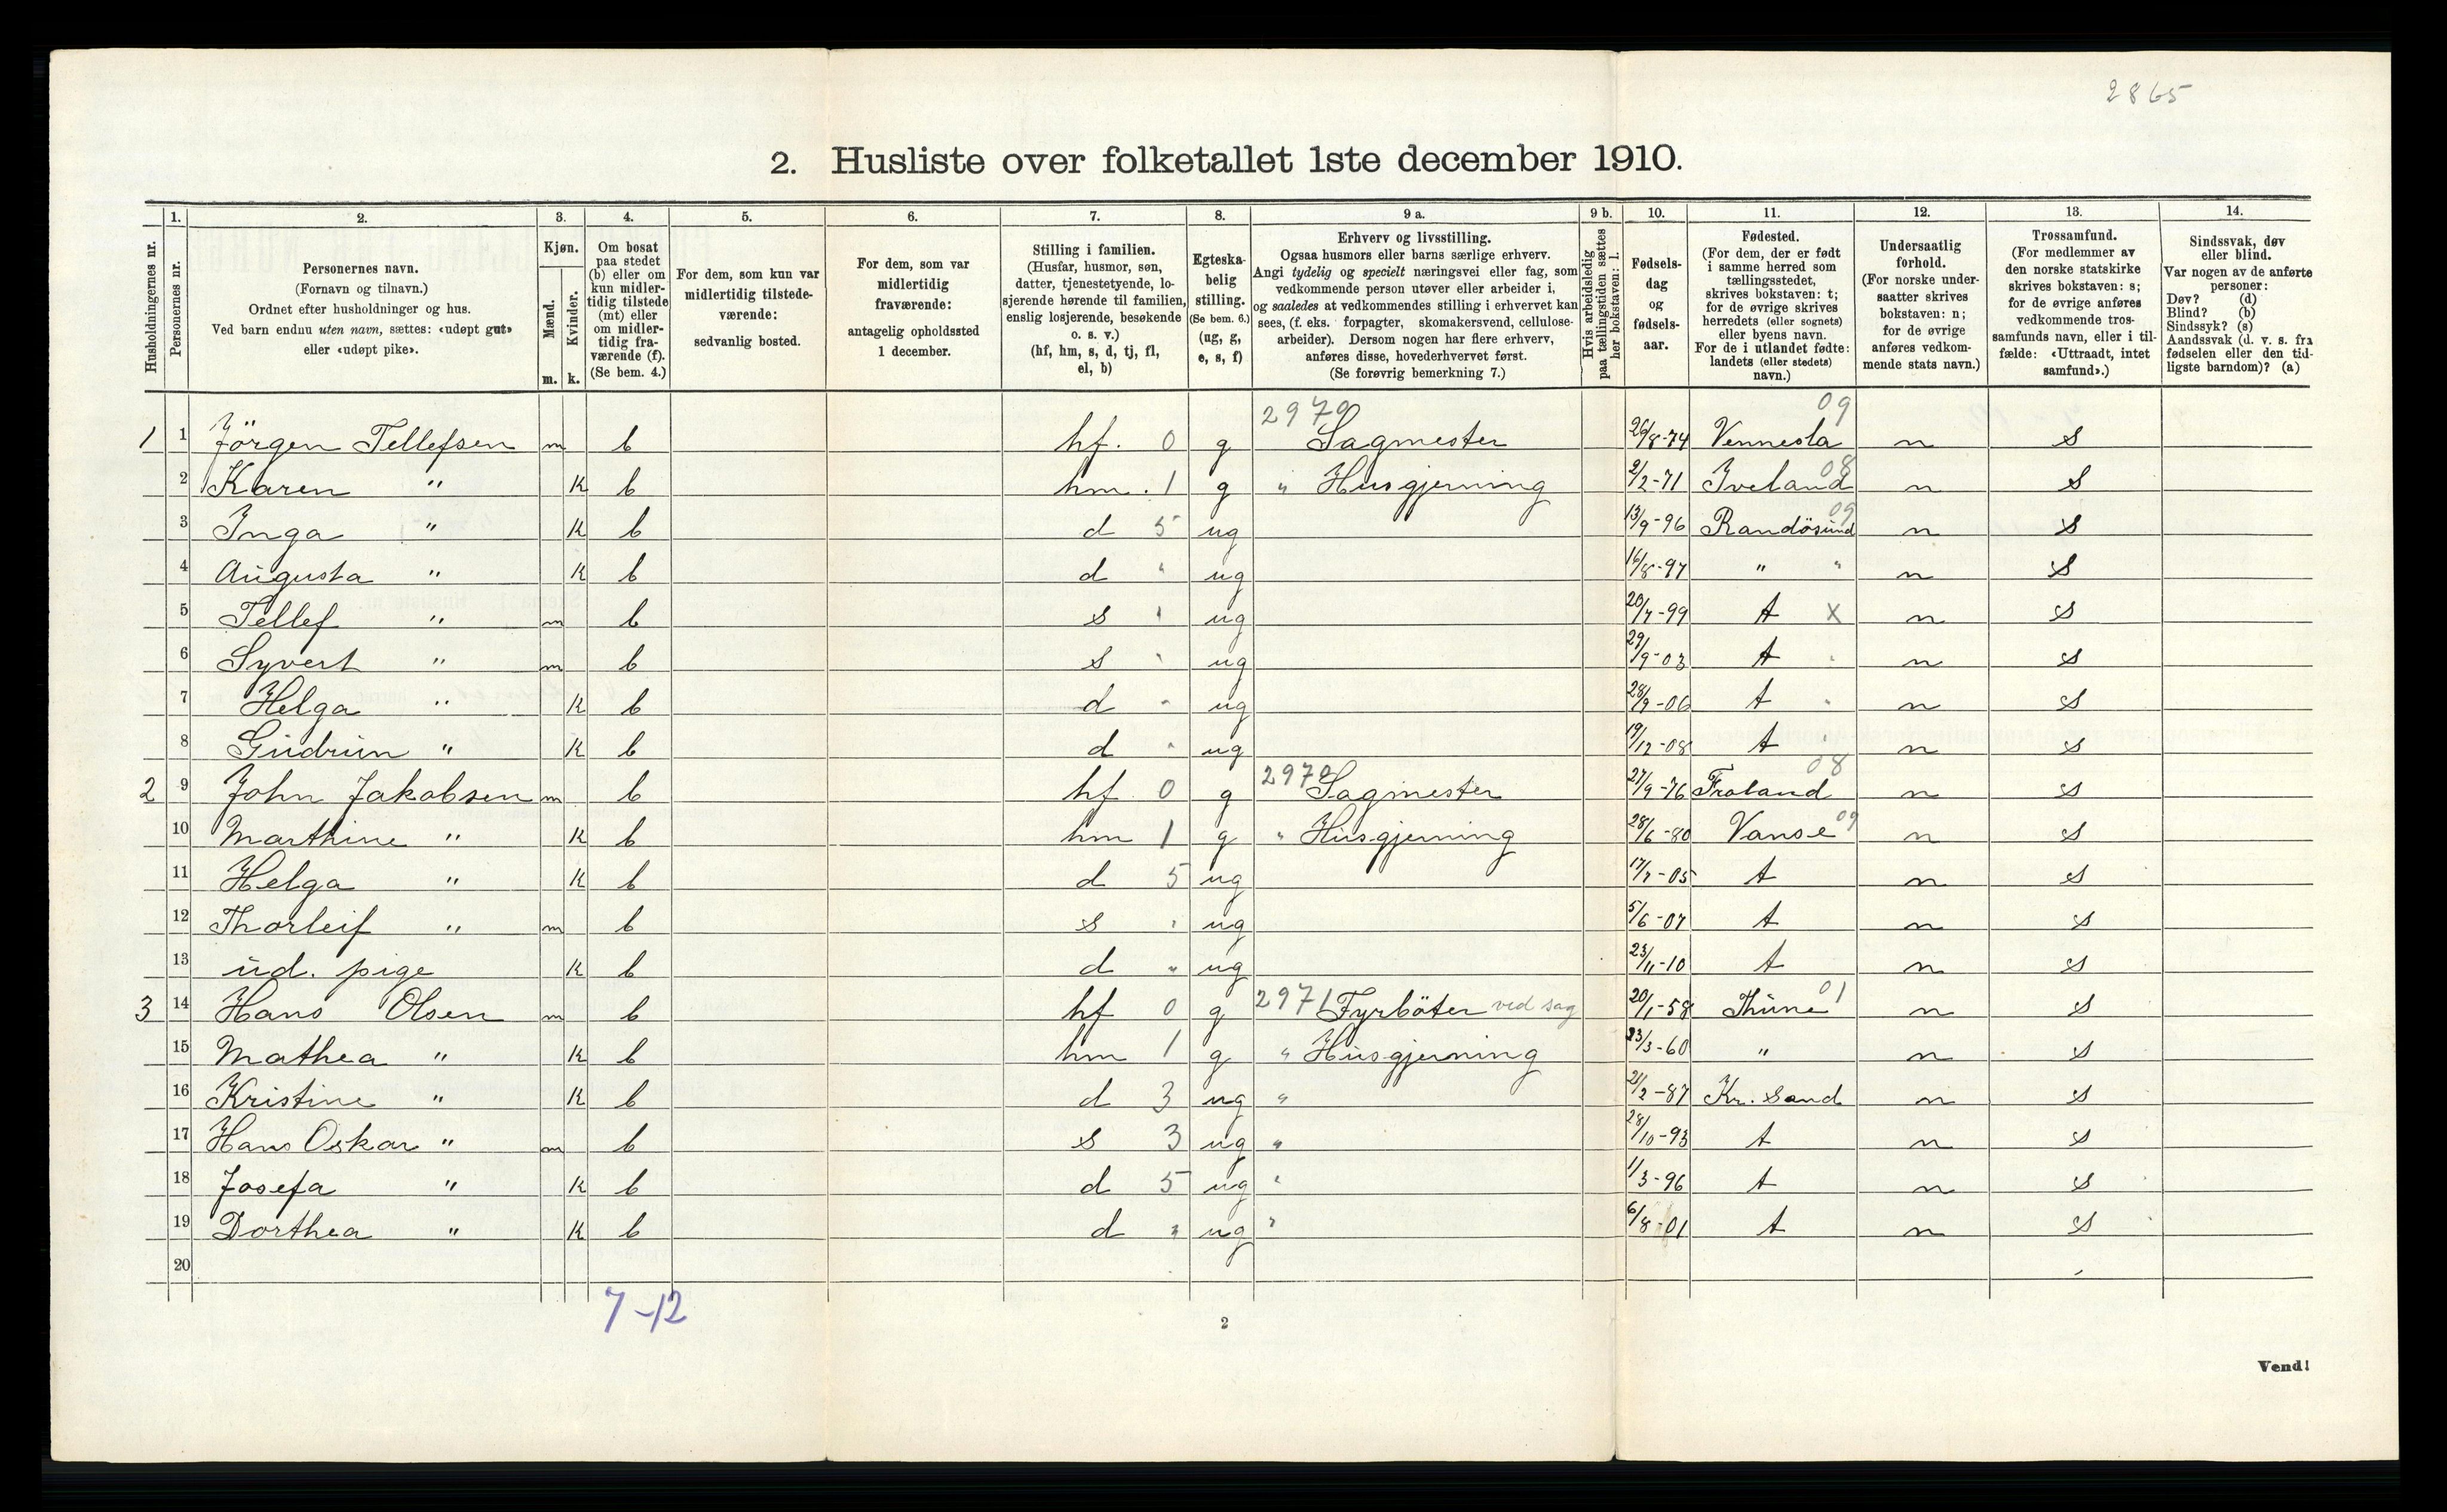 2865
2. Husliste over folketallet 1ste december 1910.
Husholdningernes nr.
1.
Personernes nr.
2.
Personernes navn.
(Fornavn og tilnavn.)
Ordnet efter husholdninger og hus.
Ved barn endnu uten navn, sættes: «udøpt gut»
eller «udøpt pike».
3.
Kjøn.
Mænd.
Kvinder.
m. k.
4.
Om bosat
paa stedet
(b) eller om
kun midler-
tidig tilstede
(mt) eller
om midler-
tidig fra-
værende (f).
(Se bem. 4.)
5.
For dem, som kun var
midlertidig tilstede-
værende:
sedvanlig bosted.
6.
For dem, som var
midlertidig
fraværende:
antagelig opholdssted
1 december.
7.
Stilling i familien.
(Husfar, husmor, søn,
datter, tjenestetyende, lo-
sjerende hørende til familien,
enslig losjerende, besøkende
o. s. v.)
(hf, hm, s, d, tj, fl,
el, b)
8.
Egteska-
belig
stilling.
(Se bem. 6.)
(ug, g,
e, s, f)
9 a.
Erhverv og livsstilling.
Ogsaa husmors eller barns særlige erhverv.
Angi tydelig og specielt næringsvei eller fag, som
vedkommende person utøver eller arbeider i,
og saaledes at vedkommendes stilling i erhvervet kan
sees, (f. eks. forpagter, skomakersvend, cellulose-
arbeider). Dersom nogen har flere erhverv,
anføres disse, hovederhvervet først.
(Se forøvrig bemerkning 7.)
9 b.
Hvis arbeidsledig
paa tællingstiden sættes
her bokstaven: l.
10.
Fødsels-
dag
og
fødsels-
aar.
11.
Fødested.
(For dem, der er født
i samme herred som
tællingsstedet,
skrives bokstaven: t;
for de øvrige skrives
herredets (eller sognets)
eller byens navn.
For de i utlandet fødte:
landets (eller stedets)
navn.)
12.
Undersaatlig
forhold.
(For norske under-
saatter skrives
bokstaven: n;
for de øvrige
anføres vedkom-
mende stats navn.)
13.
Trossamfund.
(For medlemmer av
den norske statskirke
skrives bokstaven: s;
for de øvrige anføres
vedkommende tros-
samfunds navn, eller i til-
fælde: «Uttraadt, intet
samfund».)
14.
Sindssvak, døv
eller blind.
Var nogen av de anførte
personer:
Døv? (d)
Blind? (b)
Sindssyk? (s)
Aandssvak (d. v. s. fra
fødselen eller den tid-
ligste barndom)? (a)
1 1 Jörgen Tellefsen m b hf. 0 g 2970 Sagmester 26/8-74 Vennesla 09 n s
2 Karen " k b hm. 1 g " Husgjerning 2/2-71 Iveland 08 n s
3 Inga " k b d 5 ug 13/9-96 Randösund 09 n s
4 Augusta " k b d " ug 16/8-97 " " n s
5 Tellef " m b s " ug 20/7-99 t X n s
6 Syvert " m b s " ug 29/9-03 t " n s
7 Helga " k b d " ug 28/9-06 t " n s
8 Gudrun " k b d " ug 19/12-08 t " n s
2 9 John Jakobsen m b hf 0 g 2970 Sagmester 27/9-76 Froland 08 n s
10 Marthine " k b hm 1 g " Husgjerning 28/6-80 Vanse 09 n s
11 Helga " k b d 5 ug 17/7-05 t n s
12 Thorleif " m b s " ug 5/6-07 t n s
13 ud. pige k b d " ug 23/11-10 t n s
3 14 Hans Olsen m b hf 0 g 2971 Fyrböter ved sag 20/1-58 Thune 01 n s
15 Mathea " k b hm 1 g " Husgjerning 23/3-60 " n s
16 Kristine " k b d 3 ug " 21/2-87 Kr. Sand n s
17 Hans Oskar " m b s 3 ug " 28/10-93 t n s
18 Josefa " k b d 5 ug " 1/3-96 t n s
19 Dorthea " k b d " ug " 6/8-01 t n s
20
7-12
2
Vend!